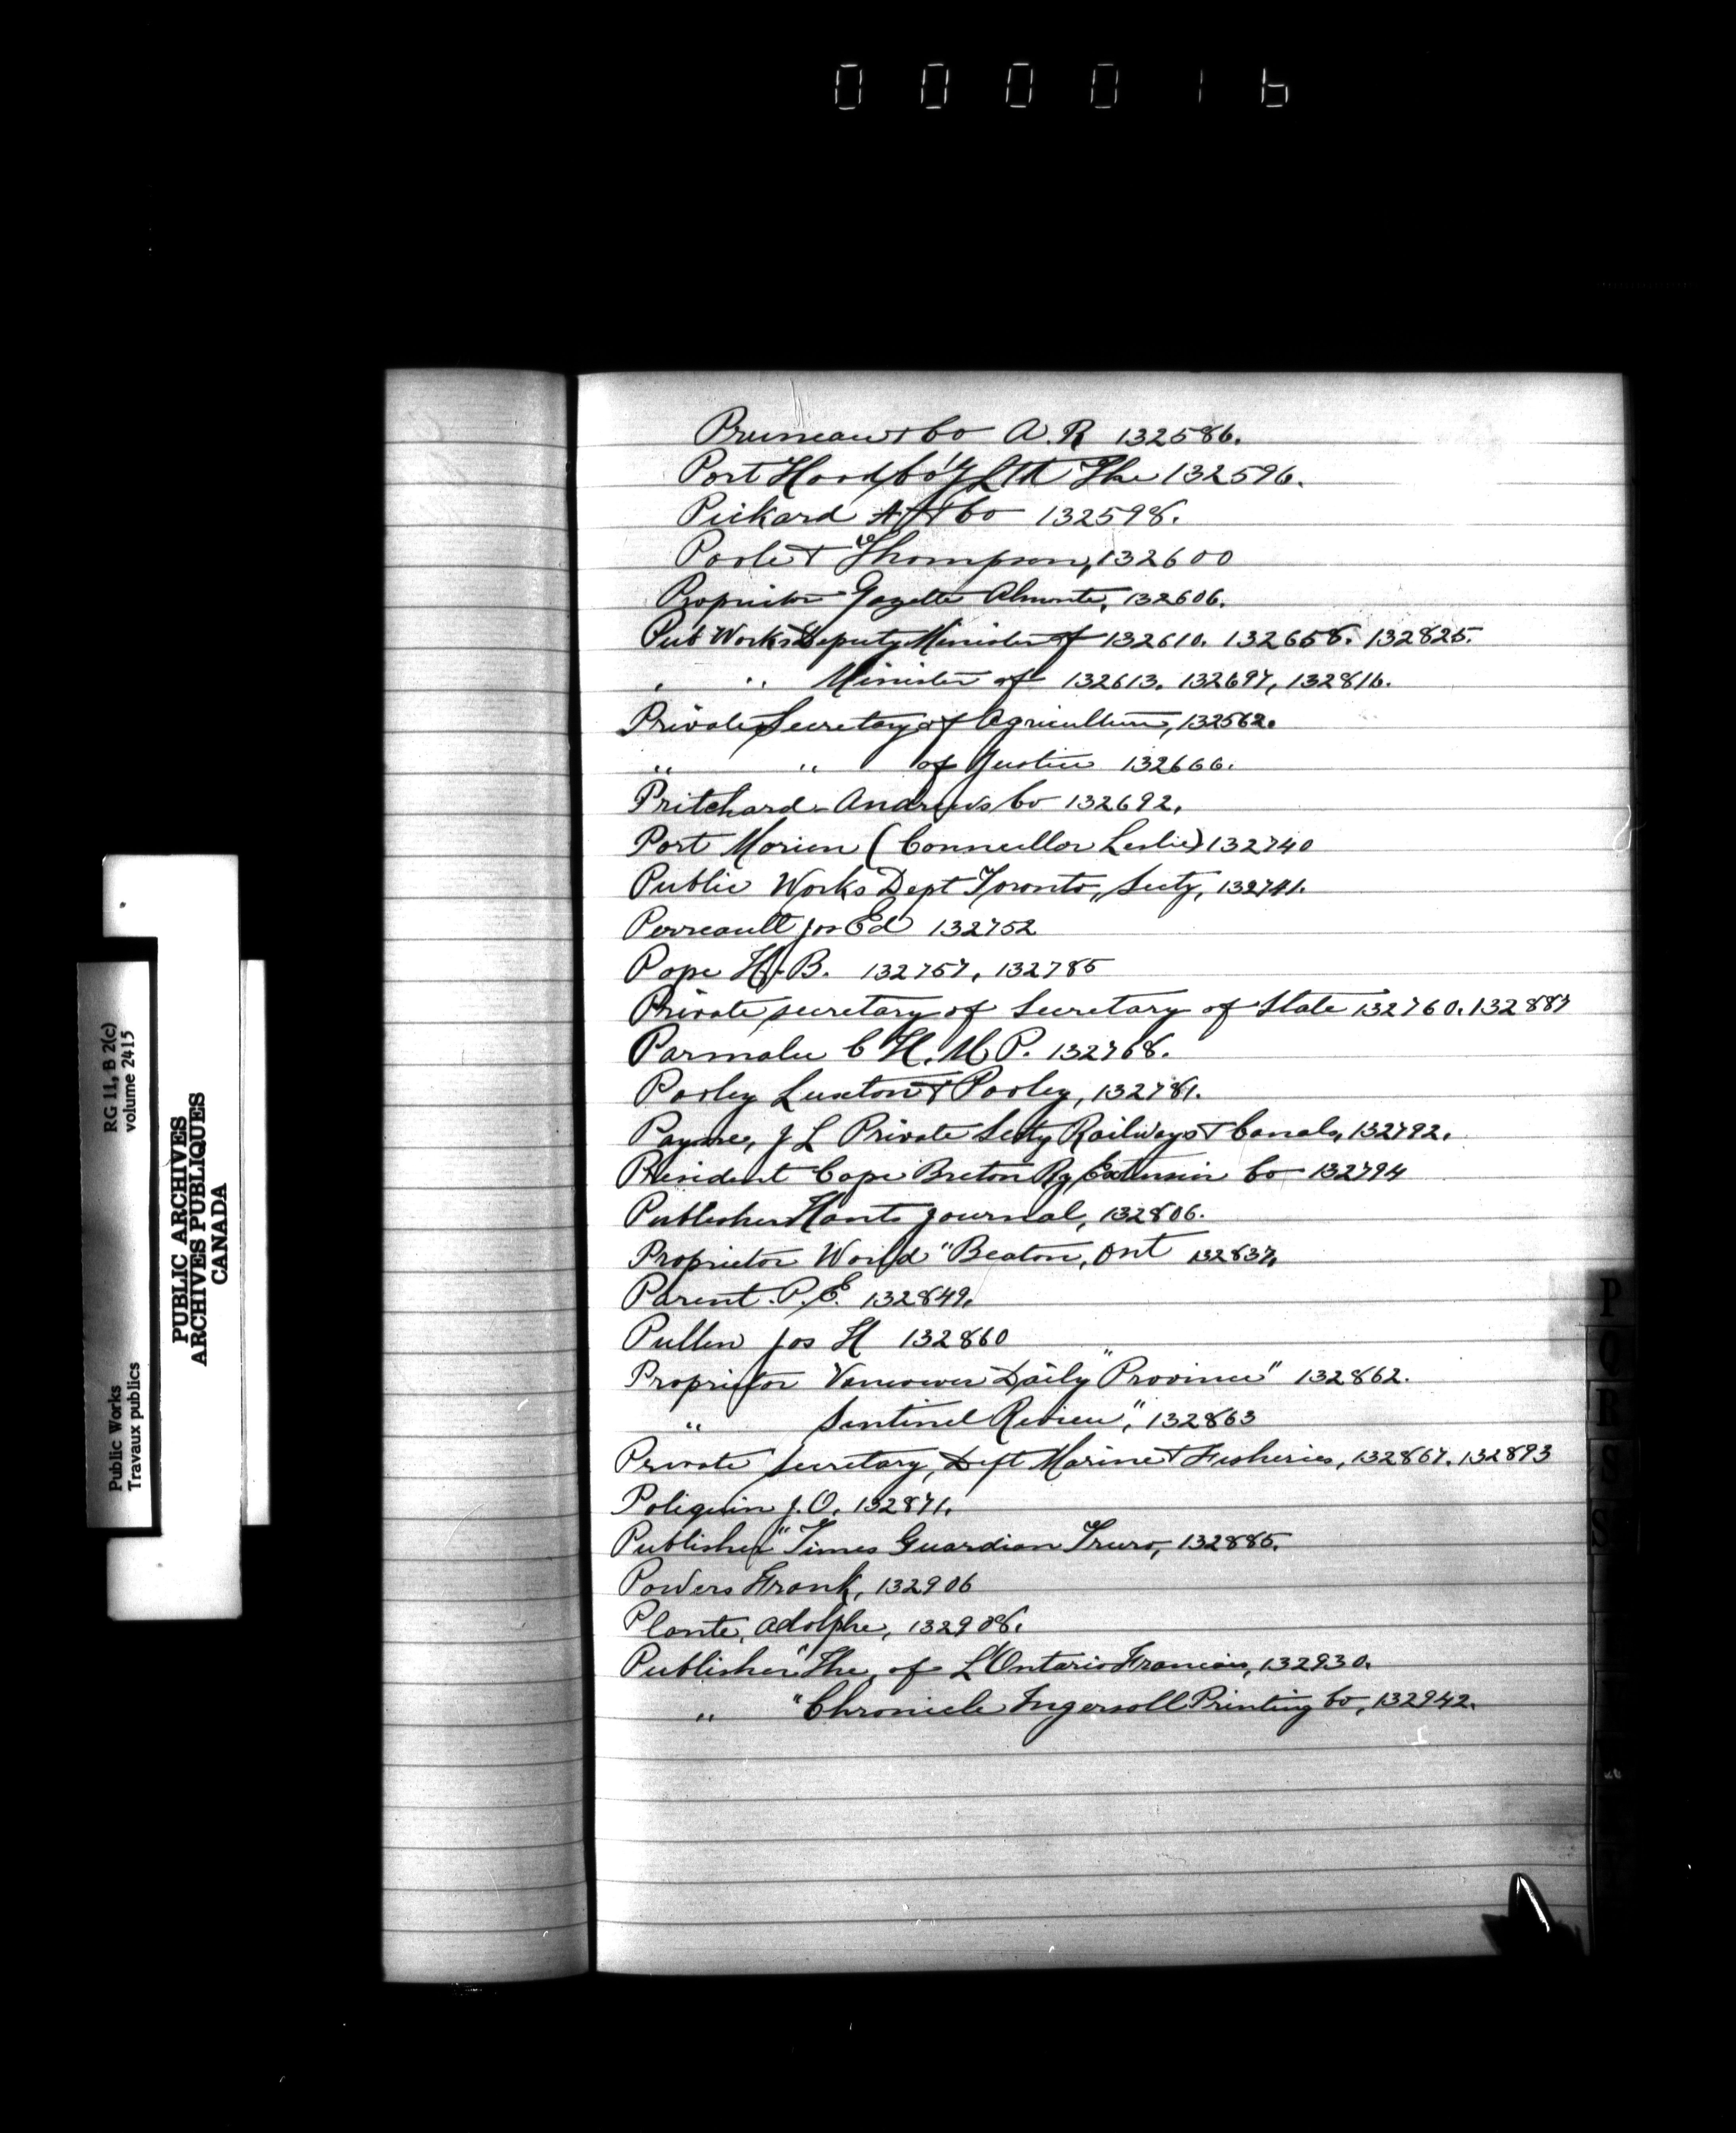 000016
Pruneau & Co A. R 132586.
Port Hood Co'y Ltd The 132596.
Pickard & Co 132598.
Poole & Thompson, 132600
Proprietor Gazette Almonte, 132606.
Pub Works Deputy Minister of 132610. 132658. 132825.
" " Minister of 132613. 132697, 132816.
Private Secretary of Agriculture, 132562.
" " of Justice 132666.
Pritchard Andrews Co 132692.
Port Morien (Councillor Leslie) 132740
Public Works Dept Toronto, Secty, 132741.
Perreault Jos Ed 132752
Pope H. B. 132757, 132785
Private secretary of Secretary of State 132760. 132887
Parmalee C H. M P. 132768.
Pooley Luxton & Pooley, 132781.
Payne, J L Private Secty Railways & Canals, 132792.
President Cape Breton Ry Extension Co 132794
Publisher Hants Journal, 132806.
Proprietor World "Beaton, Ont 132837,
Parent. P. E. 132849.
Pullen Jos H 132860
Proprietor Vancouver Daily "Province" 132862.
" Sentinel Review", 132863
Private Secretary, Dept Marine & Fisheries, 132867. 132893
Poliquin J. O. 132871.
Publisher "Times Guardian Truro, 132885.
Powers Frank, 132906
Plante, Adolphe, 132908.
Publisher "The, of L'Ontario Francais, 132930.
" "Chronicle Ingersoll Printing Co, 132942.
P
Q
R
S
S
RG 11, B 2(c)
volume 2415
Public Works
Travaux publics
PUBLIC ARCHIVES
ARCHIVES PUBLIQUES
CANADA